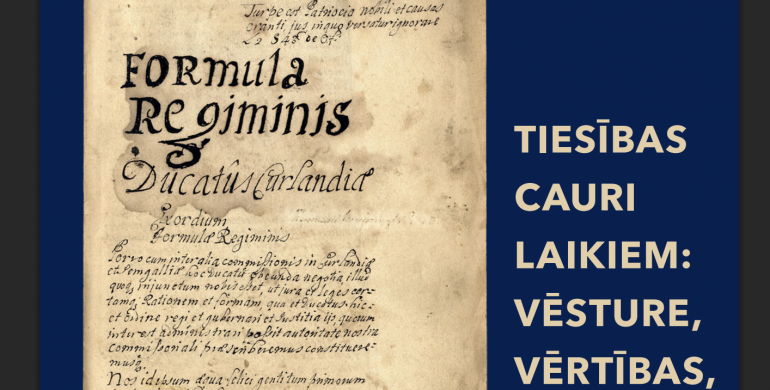 Turpe est Patricio nobili et causas
oranti, jus in quo versatur ignorare
FORMULA
Regiminis
Ducatûs Curlandiæ
Exordium
Formulæ Regiminis
Porro cum inter alia commissionis in Curlandiæ
et Semgalliæ hoc ducatu obeunda negotia, illud
quoq, injunctum nobis esset, ut jura et leges cer-
tamq, Rationem et formam, qua et ducatus hic
et ordine regi et gubernari et Justitia ijs quorum
interest administrari possit autoritate nostra
commissoriali præscriberemus constituere-
musq,
Nos id ipsum aqua felici gentium primorum
TIESĪBAS
CAURI
LAIKIEM:
VĒSTURE,
VĒRTĪBAS,